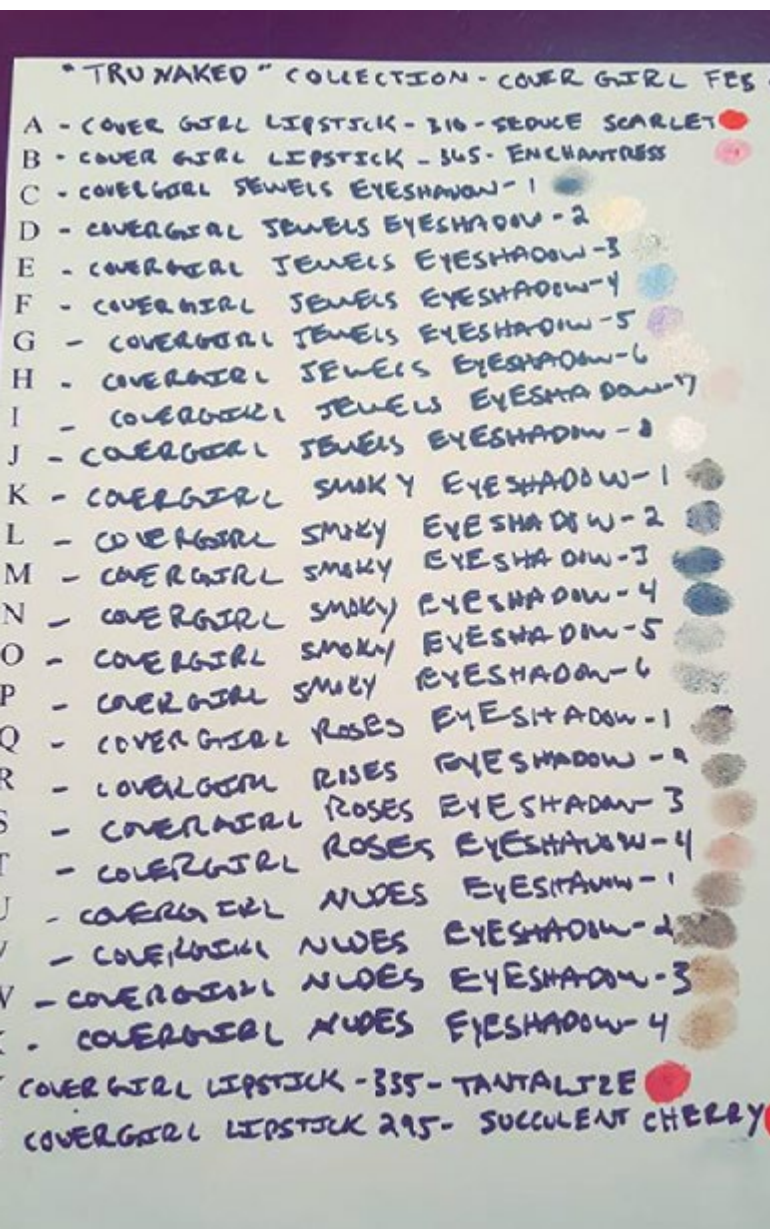 "TRU NAKED" COLLECTION - COVER GIRL FEB
A - COVER GIRL LIPSTICK - 310 - SEDUCE SCARLET
B - COVER GIRL LIPSTICK - 365 - ENCHANTRESS
C - COVERGIRL JEWELS EYESHADOW - 1
D - COVERGIRL JEWELS EYESHADOW - 2
E - COVERGIRL JEWELS EYESHADOW - 3
F - COVERGIRL JEWELS EYESHADOW - 4
G - COVERGIRL JEWELS EYESHADOW - 5
H - COVERGIRL JEWELS EYESHADOW - 6
I - COVERGIRL JEWELS EYESHADOW - 7
J - COVERGIRL JEWELS EYESHADOW - 8
K - COVERGIRL SMOKY EYESHADOW - 1
L - COVERGIRL SMOKY EYESHADOW - 2
M - COVERGIRL SMOKY EYESHADOW - 3
N - COVERGIRL SMOKY EYESHADOW - 4
O - COVERGIRL SMOKY EYESHADOW - 5
P - COVERGIRL SMOKY EYESHADOW - 6
Q - COVERGIRL ROSES EYESHADOW - 1
R - COVERGIRL ROSES EYESHADOW - 2
S - COVERGIRL ROSES EYESHADOW - 3
T - COVERGIRL ROSES EYESHADOW - 4
U - COVERGIRL NUDES EYESHADOW - 1
- COVERGIRL NUDES EYESHADOW - 2
- COVERGIRL NUDES EYESHADOW - 3
- COVERGIRL NUDES EYESHADOW - 4
COVERGIRL LIPSTICK - 335 - TANTALIZE
COVERGIRL LIPSTICK 295 - SUCCULENT CHERRY